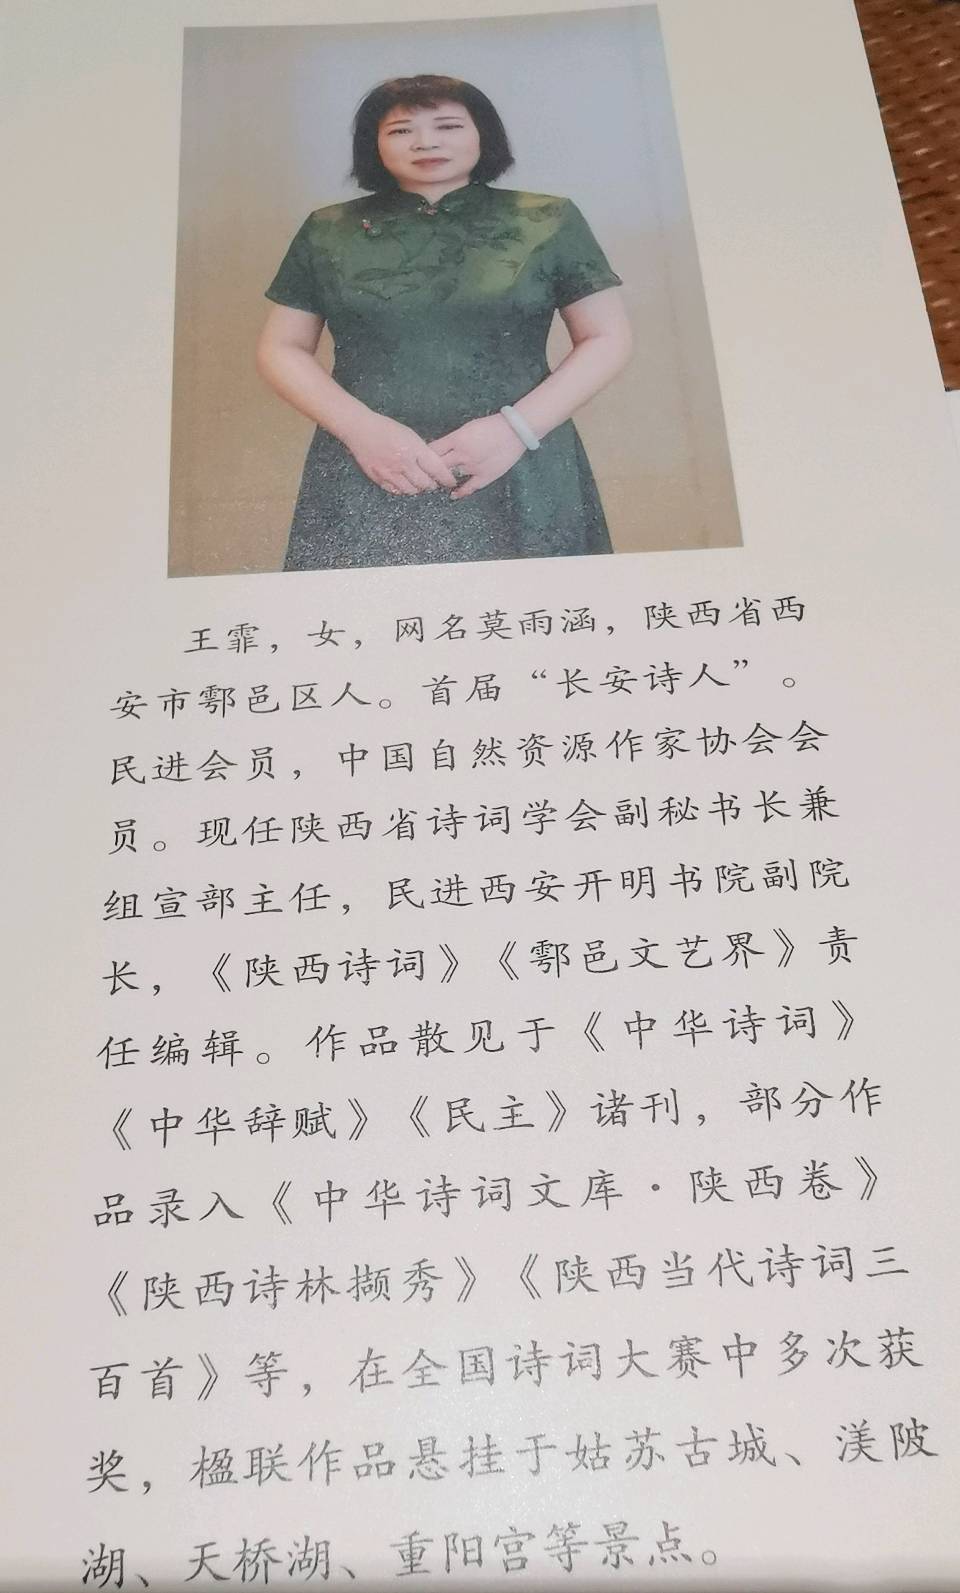 王霏，女，网名莫雨涵，陕西省西
安市鄠邑区人。首届“长安诗人”。
民进会员，中国自然资源作家协会会
员。现任陕西省诗词学会副秘书长兼
组宣部主任，民进西安开明书院副院
长，《陕西诗词》《鄠邑文艺界》责
任编辑。作品散见于《中华诗词》
《中华辞赋》《民主》诸刊，部分作
品录入《中华诗词文库·陕西卷》
《陕西诗林撷秀》《陕西当代诗词三
百首》等，在全国诗词大赛中多次获
奖，楹联作品悬挂于姑苏古城、渼陂
湖、天桥湖、重阳宫等景点。